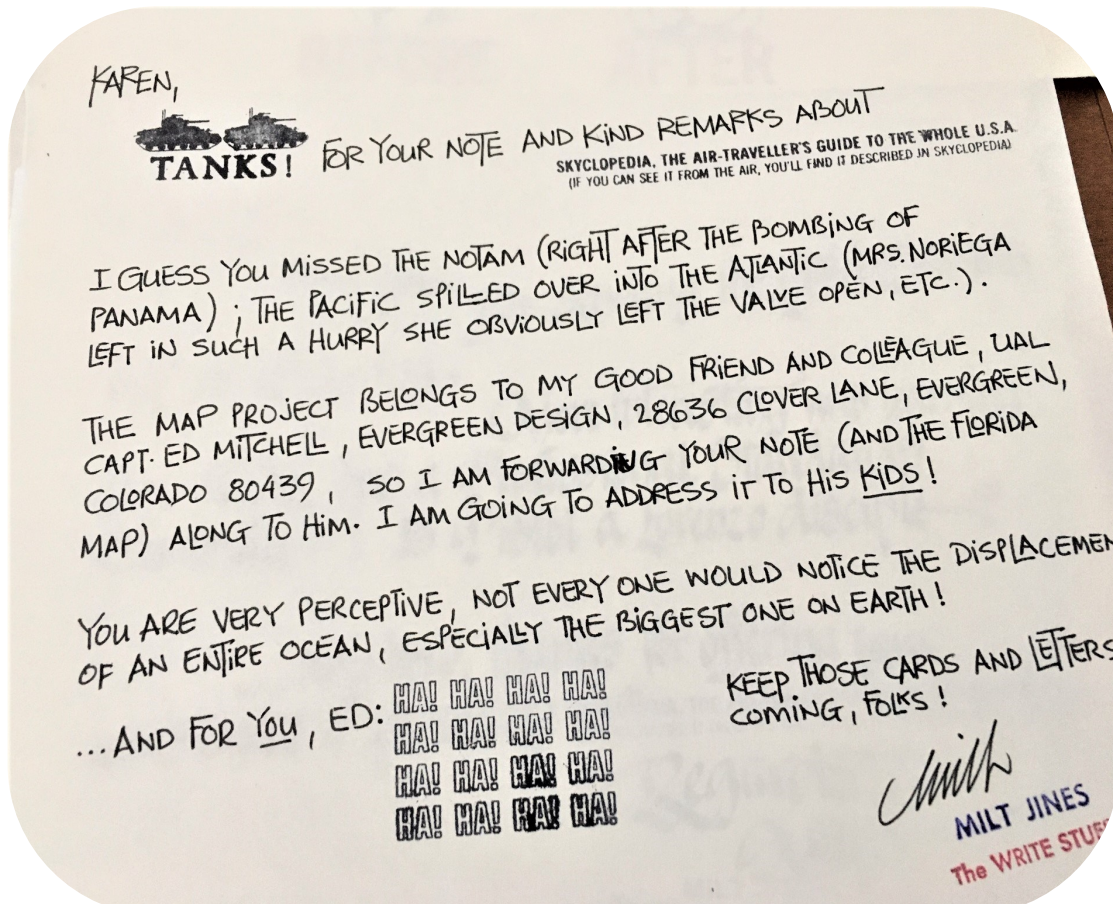 KAREN,
TANKS! FOR YOUR NOTE AND KIND REMARKS ABOUT
SKYCLOPEDIA, THE AIR-TRAVELLER'S GUIDE TO THE WHOLE U.S.A.
(IF YOU CAN SEE IT FROM THE AIR, YOU'LL FIND IT DESCRIBED IN SKYCLOPEDIA)
I GUESS YOU MISSED THE NOTAM (RIGHT AFTER THE BOMBING OF
PANAMA) ; THE PACIFIC SPILLED OVER INTO THE ATLANTIC (MRS. NORIEGA
LEFT IN SUCH A HURRY SHE OBVIOUSLY LEFT THE VALVE OPEN, ETC.).
THE MAP PROJECT BELONGS TO MY GOOD FRIEND AND COLLEAGUE, UAL
CAPT. ED MITCHELL, EVERGREEN DESIGN, 28636 CLOVER LANE, EVERGREEN,
COLORADO 80439, SO I AM FORWARDING YOUR NOTE (AND THE FLORIDA
MAP) ALONG TO HIM. I AM GOING TO ADDRESS IT TO HIS KIDS!
YOU ARE VERY PERCEPTIVE, NOT EVERY ONE WOULD NOTICE THE DISPLACEMEN
OF AN ENTIRE OCEAN, ESPECIALLY THE BIGGEST ONE ON EARTH!
...AND FOR YOU, ED:
HA! HA! HA! HA!
HA! HA! HA! HA!
HA! HA! HA! HA!
HA! HA! HA! HA!
KEEP THOSE CARDS AND LETTERS
COMING, FOLKS!
Milt
MILT JINES
The WRITE STUFF